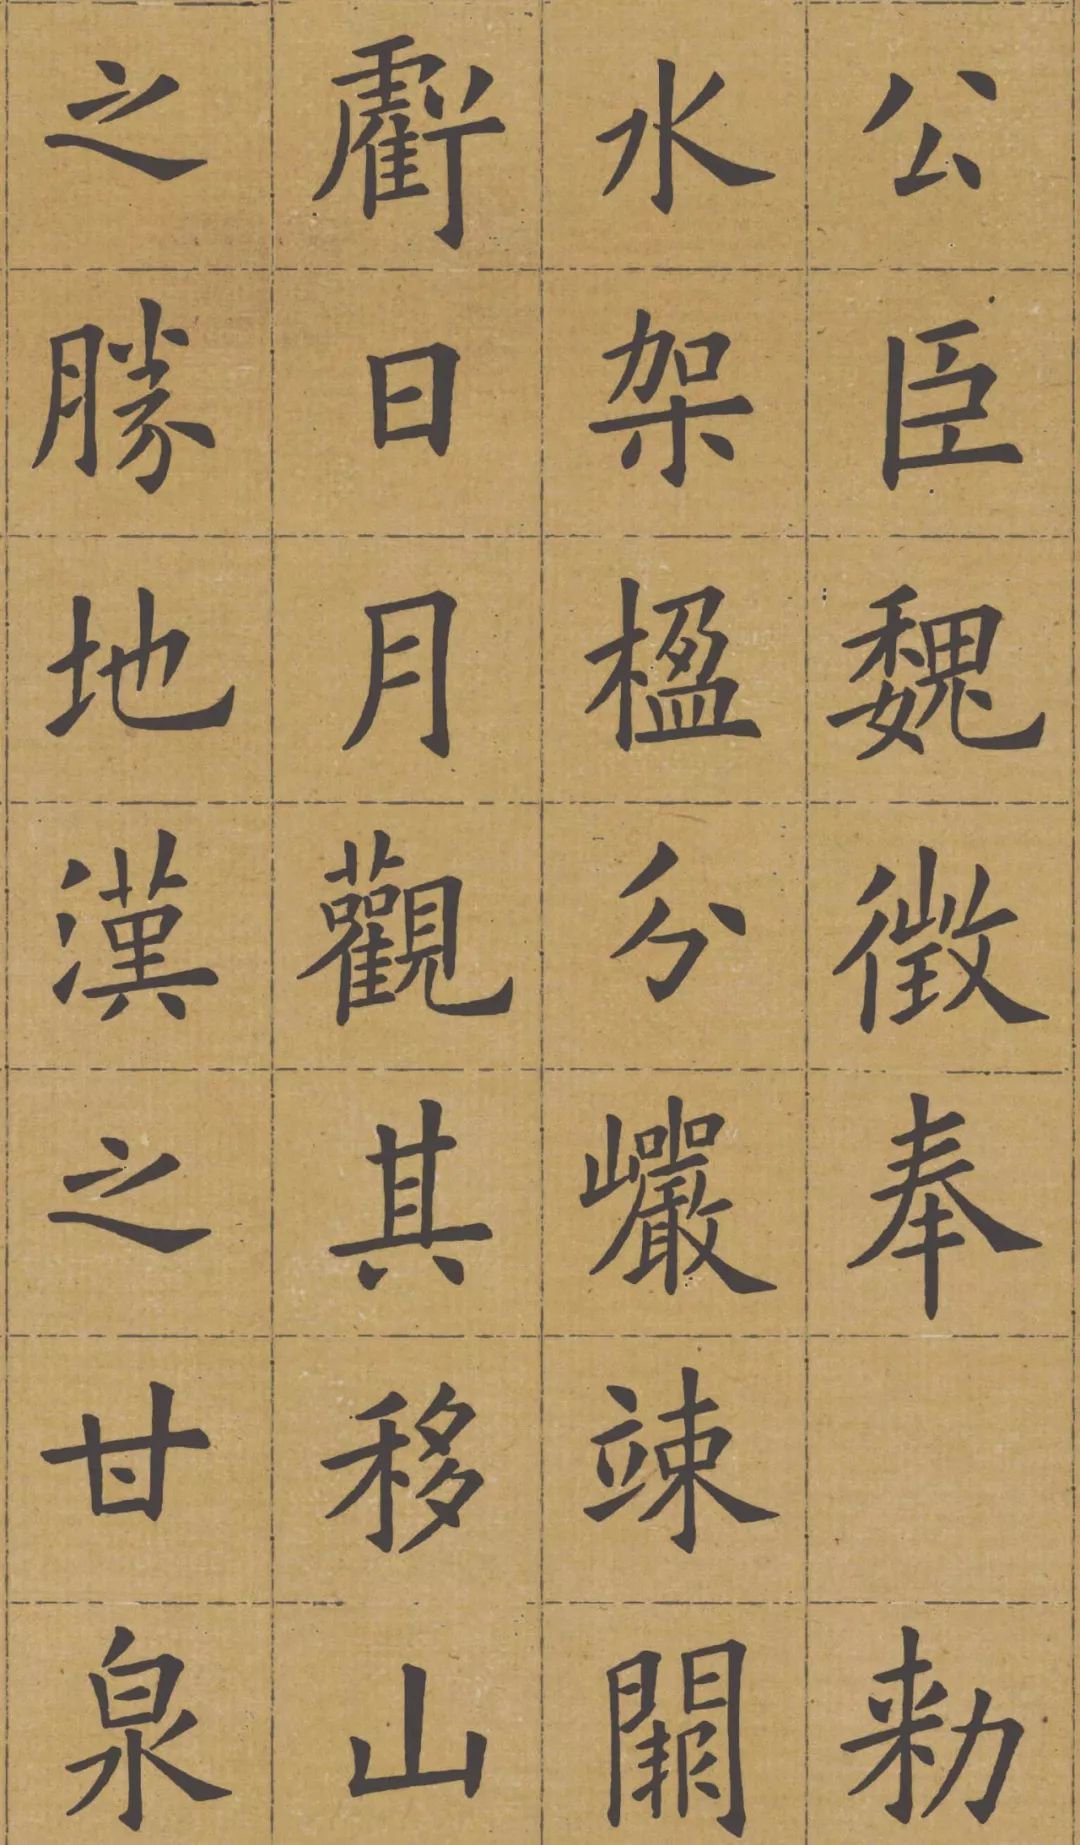 公臣魏徵奉勑
水架楹分巖竦闕
虧日月觀其移山
之勝地漢之甘泉